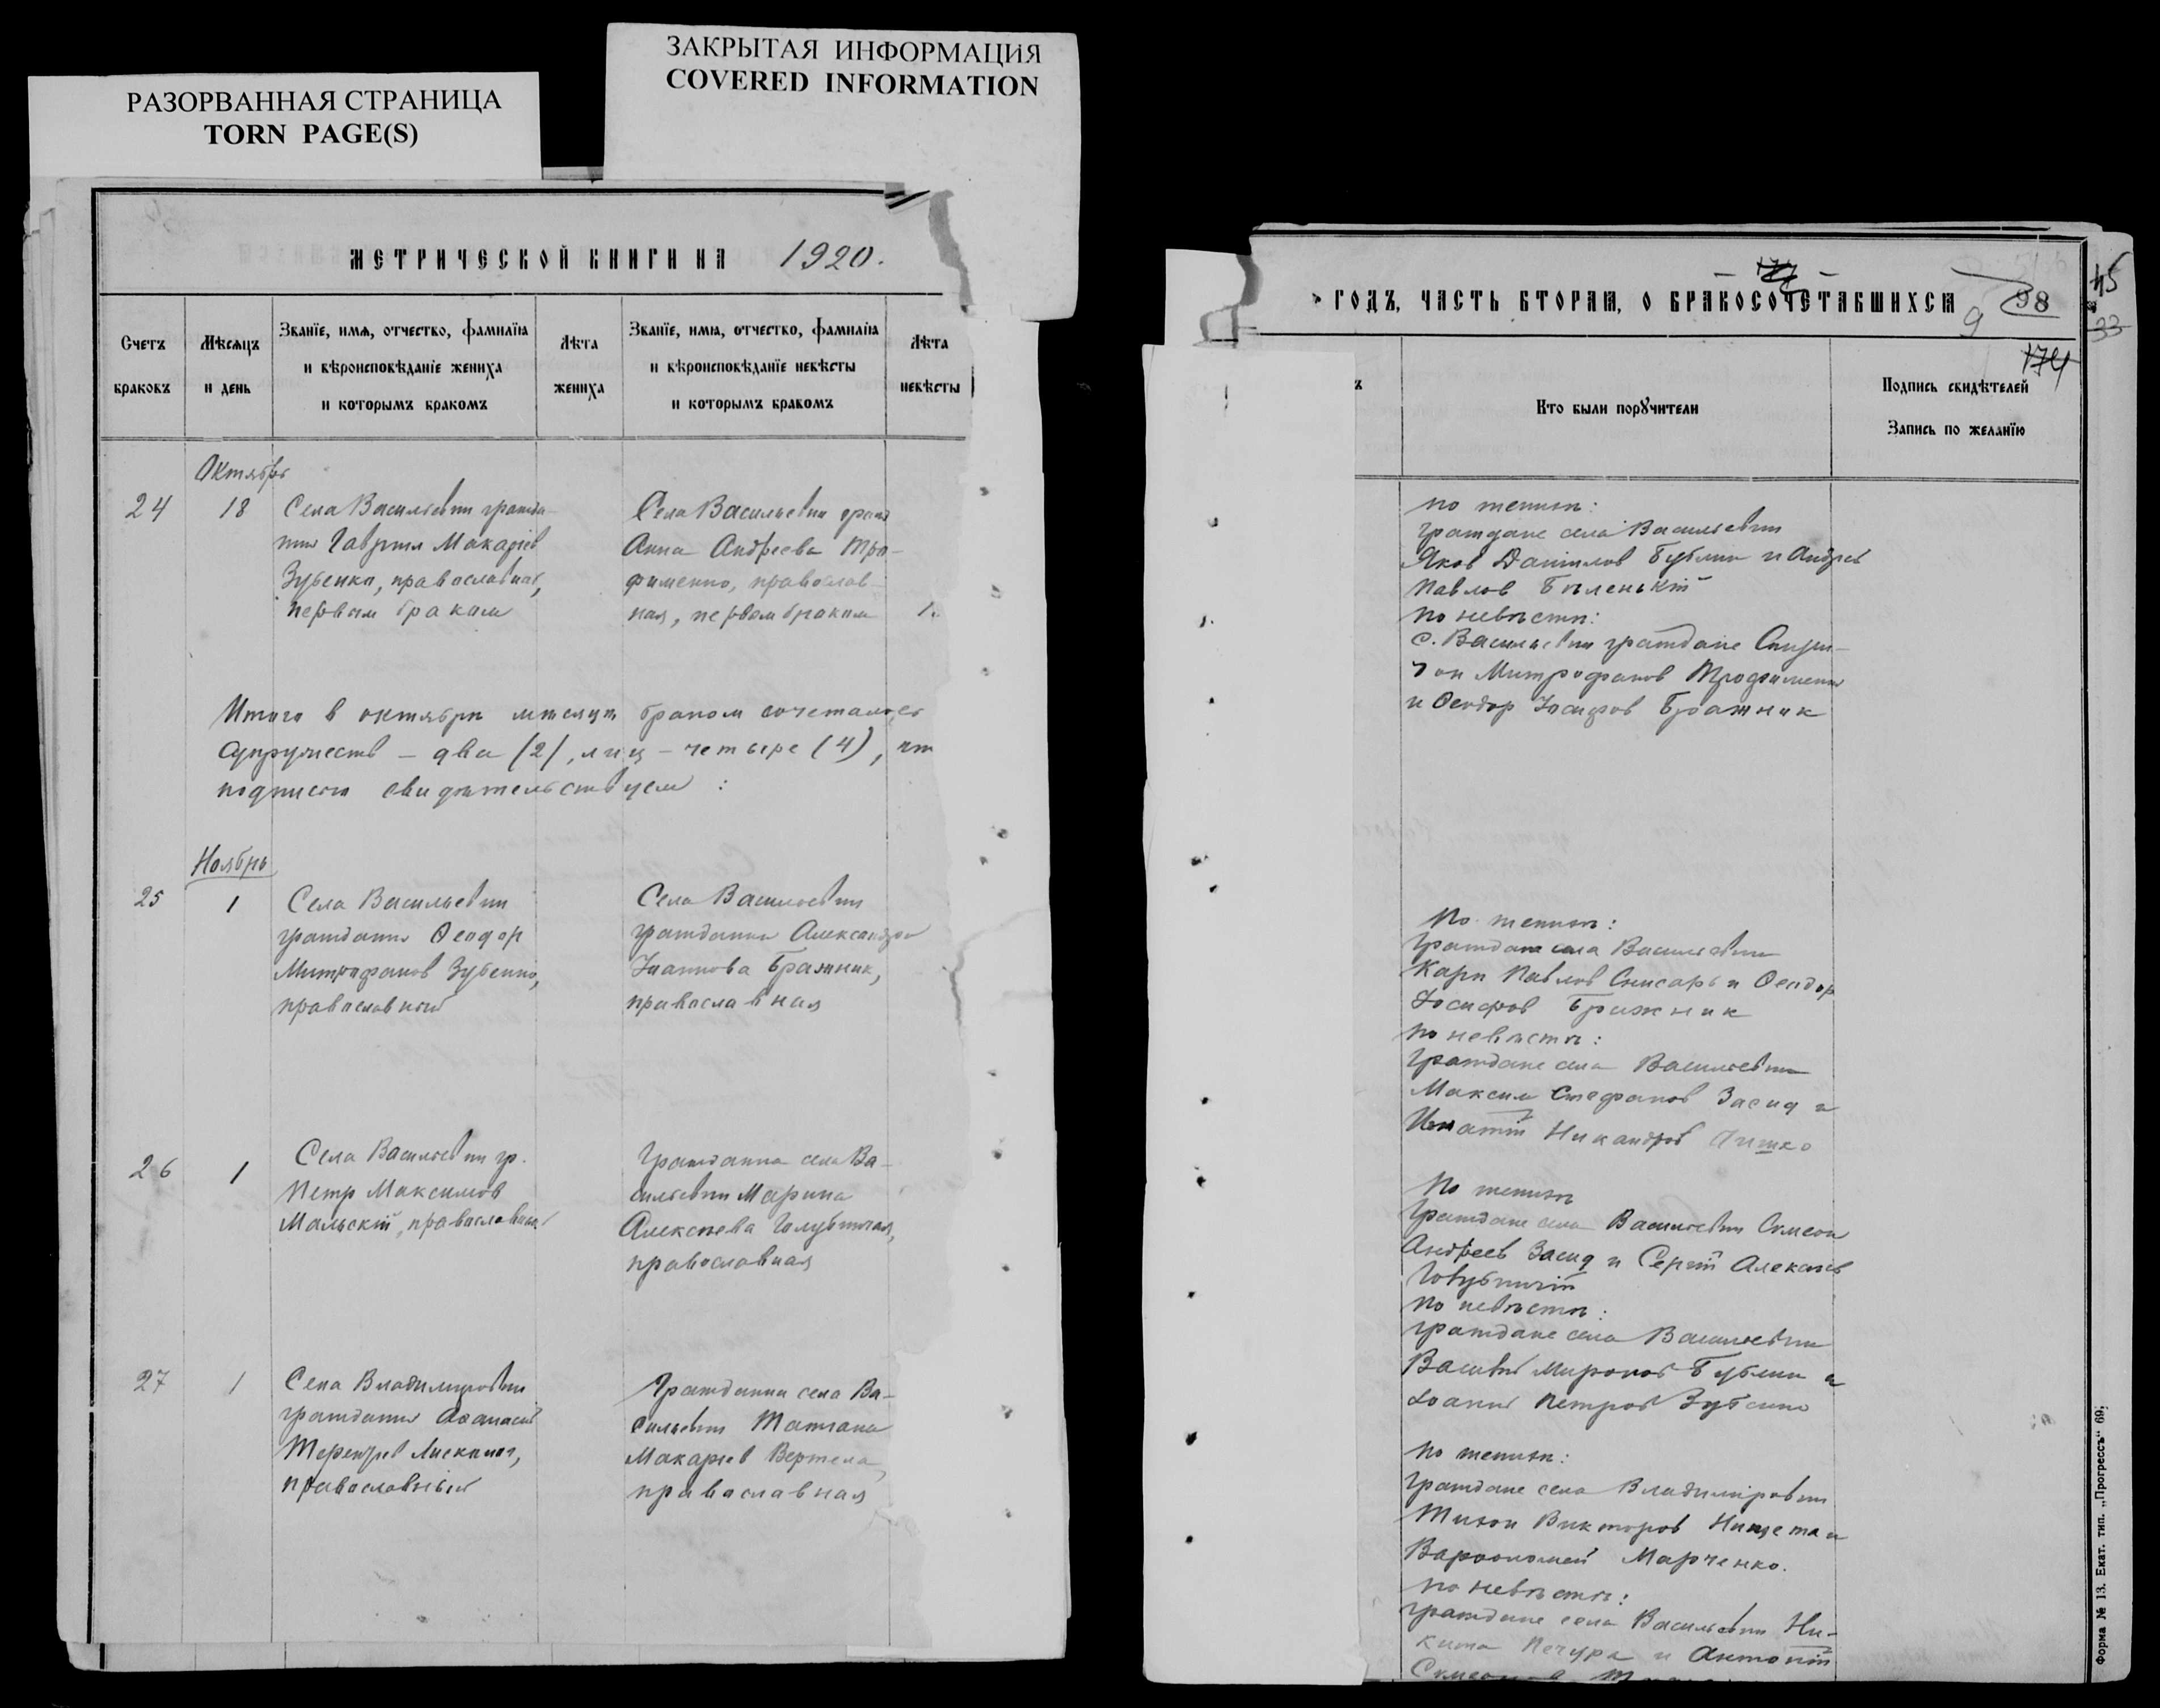 ЗАКРЫТАЯ ИНФОРМАЦИЯ
COVERED INFORMATION
РАЗОРВАННАЯ СТРАНИЦА
TORN PAGE(S)
МЕТРИЧЕСКОЙ КНИГИ НА 1920.
Счетъ браковъ
Мѣсяцъ и день
Званїе, имя, отчество, фамилїя и вѣроисповѣданїе жениха и которымъ бракомъ
Лѣта жениха
Званїе, имя, отчество, фамилїя и вѣроисповѣданїе невѣсты и которымъ бракомъ
Лѣта невѣсты
Октябрь
24
18
Села Васильевки гражда-
нин Гавриил Макарiев
Зубенко, православный,
первым браком
Села Васильевки гражд
Анна Андреева Тро-
фименко, православ-
ная, первым браком
1.
Итого в октябрѣ мѣсяцѣ браком сочеталось
супружеств - два (2), лиц - четыре (4), что
подписом свидѣтельствуем:
Ноябрь
25
1
Села Васильевки
гражданин Ѳеодор
Митрофанов Зубенко,
православный
Села Васильевки
гражданка Александра
Iоаннова Бражник,
православная
26
1
Села Васильевки гр.
Петр Максимов
Мальскiй, православный
Гражданка села Ва-
сильевки Марина
Алексѣева Голубничая,
православная
27
1
Села Владимировки
гражданин Аѳанасий
православный
Гражданка села Ва-
сильевки Татiана
Макарiев Вертела,
православная
ГОДЪ, ЧАСТЬ ВТОРАЯ, О БРАКОСОЧЕТАВШИХСЯ
98
9
45
33
174
ъ
Кто были порꙋчители
Подпись свидѣтелей
Запись по желанїю
по женихѣ:
граждане села Васильевки
Яков Данiилов Бублик и Андрей
Павлов Бѣленькiй
по невѣстѣ:
с. Васильевки граждане Спири-
дон Митрофанов Трофименко
и Ѳеодор Iосифов Бражник
По женихѣ:
Граждане села Васильевки
Карп Павлов Снисарь и Ѳеодор
Iосифов Бражник
по невѣстѣ:
Граждане села Васильевки
Максим Стефанов Засид и
Игнатiй Никандров
По женихѣ
Граждане села Васильевки Симеон
Андреев Засид и Сергiй Алексѣев
Голубничiй
по невѣстѣ:
граждане села Васильевки
Василий Миронов Бублик и
Iоанн Петров Зубенко
По женихѣ:
Граждане села Владимировки
Тихон Викторов Нищета и
Варѳоломей Марченко.
по невѣстѣ:
Граждане села Васильевки Ни-
кита Печура и Антонiй
Форма № 13. Екат. тип. „Прогрессъ“ 69;